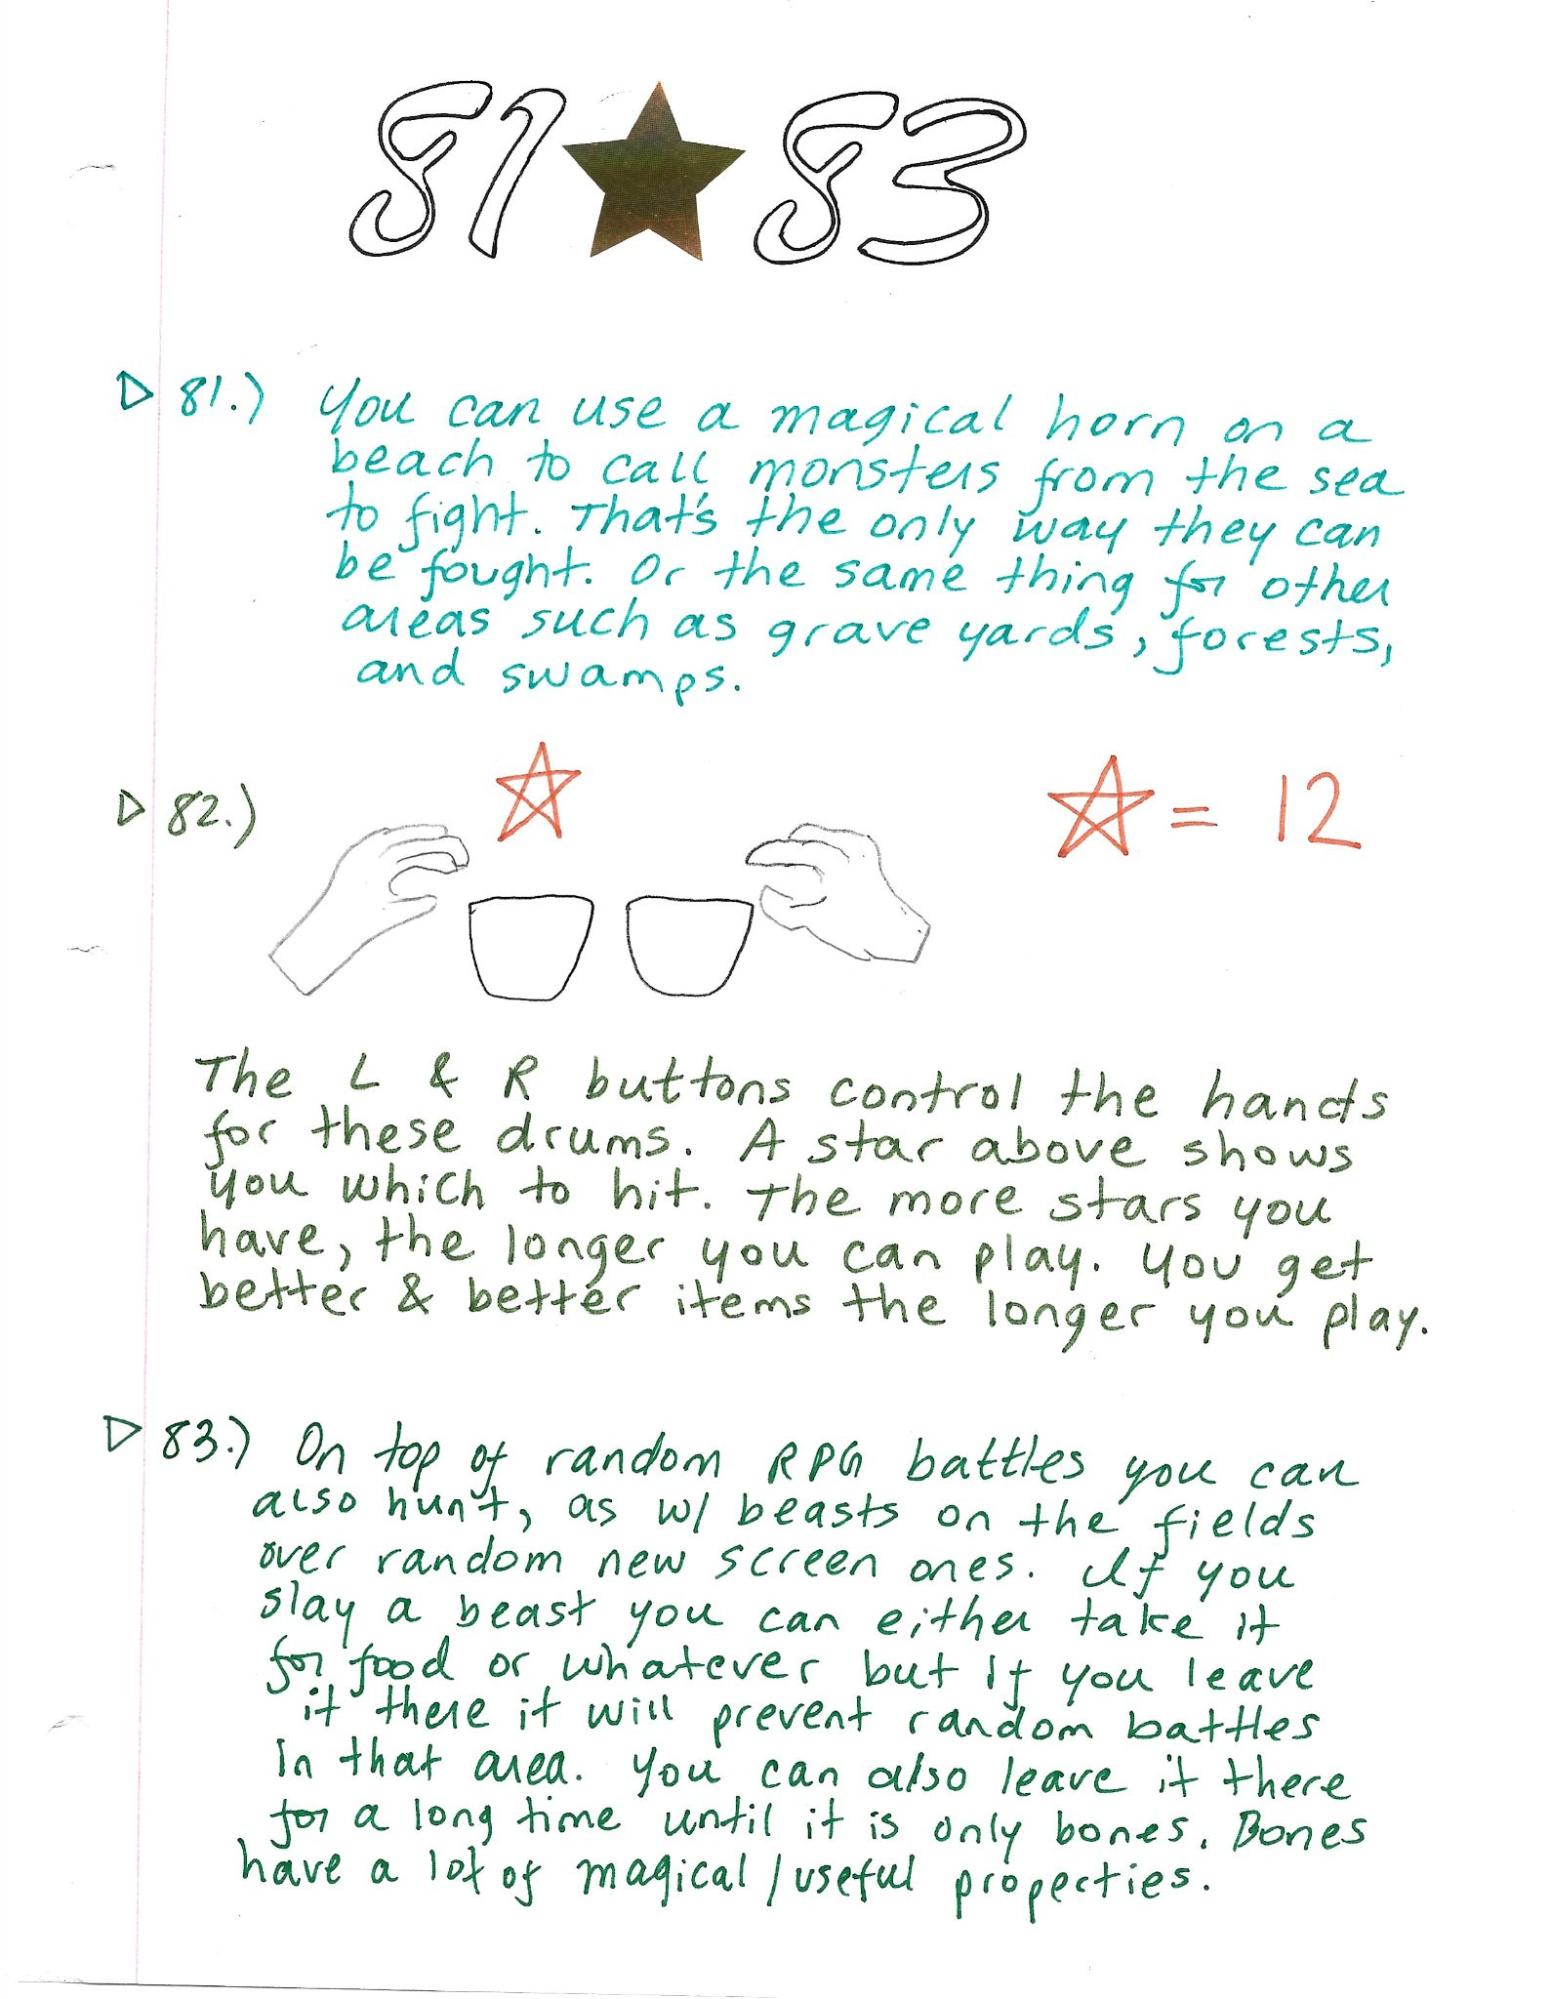 81 83
81.) You can use a magical horn on a
beach to call monsters from the sea
to fight. That's the only way they can
be fought. Or the same thing for other
areas such as grave yards, forests,
and swamps.
82.)
= 12
The L & R buttons control the hands
for these drums. A star above shows
you which to hit. The more stars you
have, the longer you can play. You get
better & better items the longer you play.
83.) On top of random RPG battles you can
also hunt, as w/ beasts on the fields
over random new screen ones. If you
slay a beast you can either take it
for food or whatever but if you leave
it there it will prevent random battles
in that area. You can also leave it there
for a long time until it is only bones. Bones
have a lot of magical / useful properties.